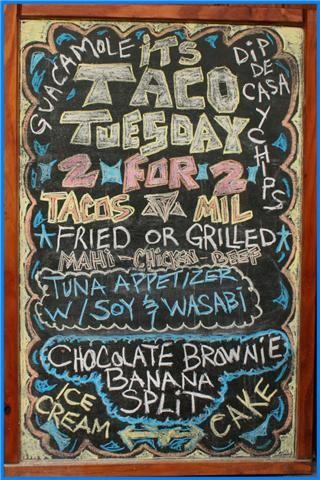 GUACAMOLE
ITS
TACO
TUESDAY
DIP
DE
CASA
Y
CHIPS
2 FOR 2
TACOS MIL
*FRIED OR GRILLED*
MAHI - CHICKEN - BEEF
TUNA APPETIZER
W/SOY & WASABI
CHOCOLATE BROWNIE
BANANA
SPLIT
ICE
CREAM
CAKE